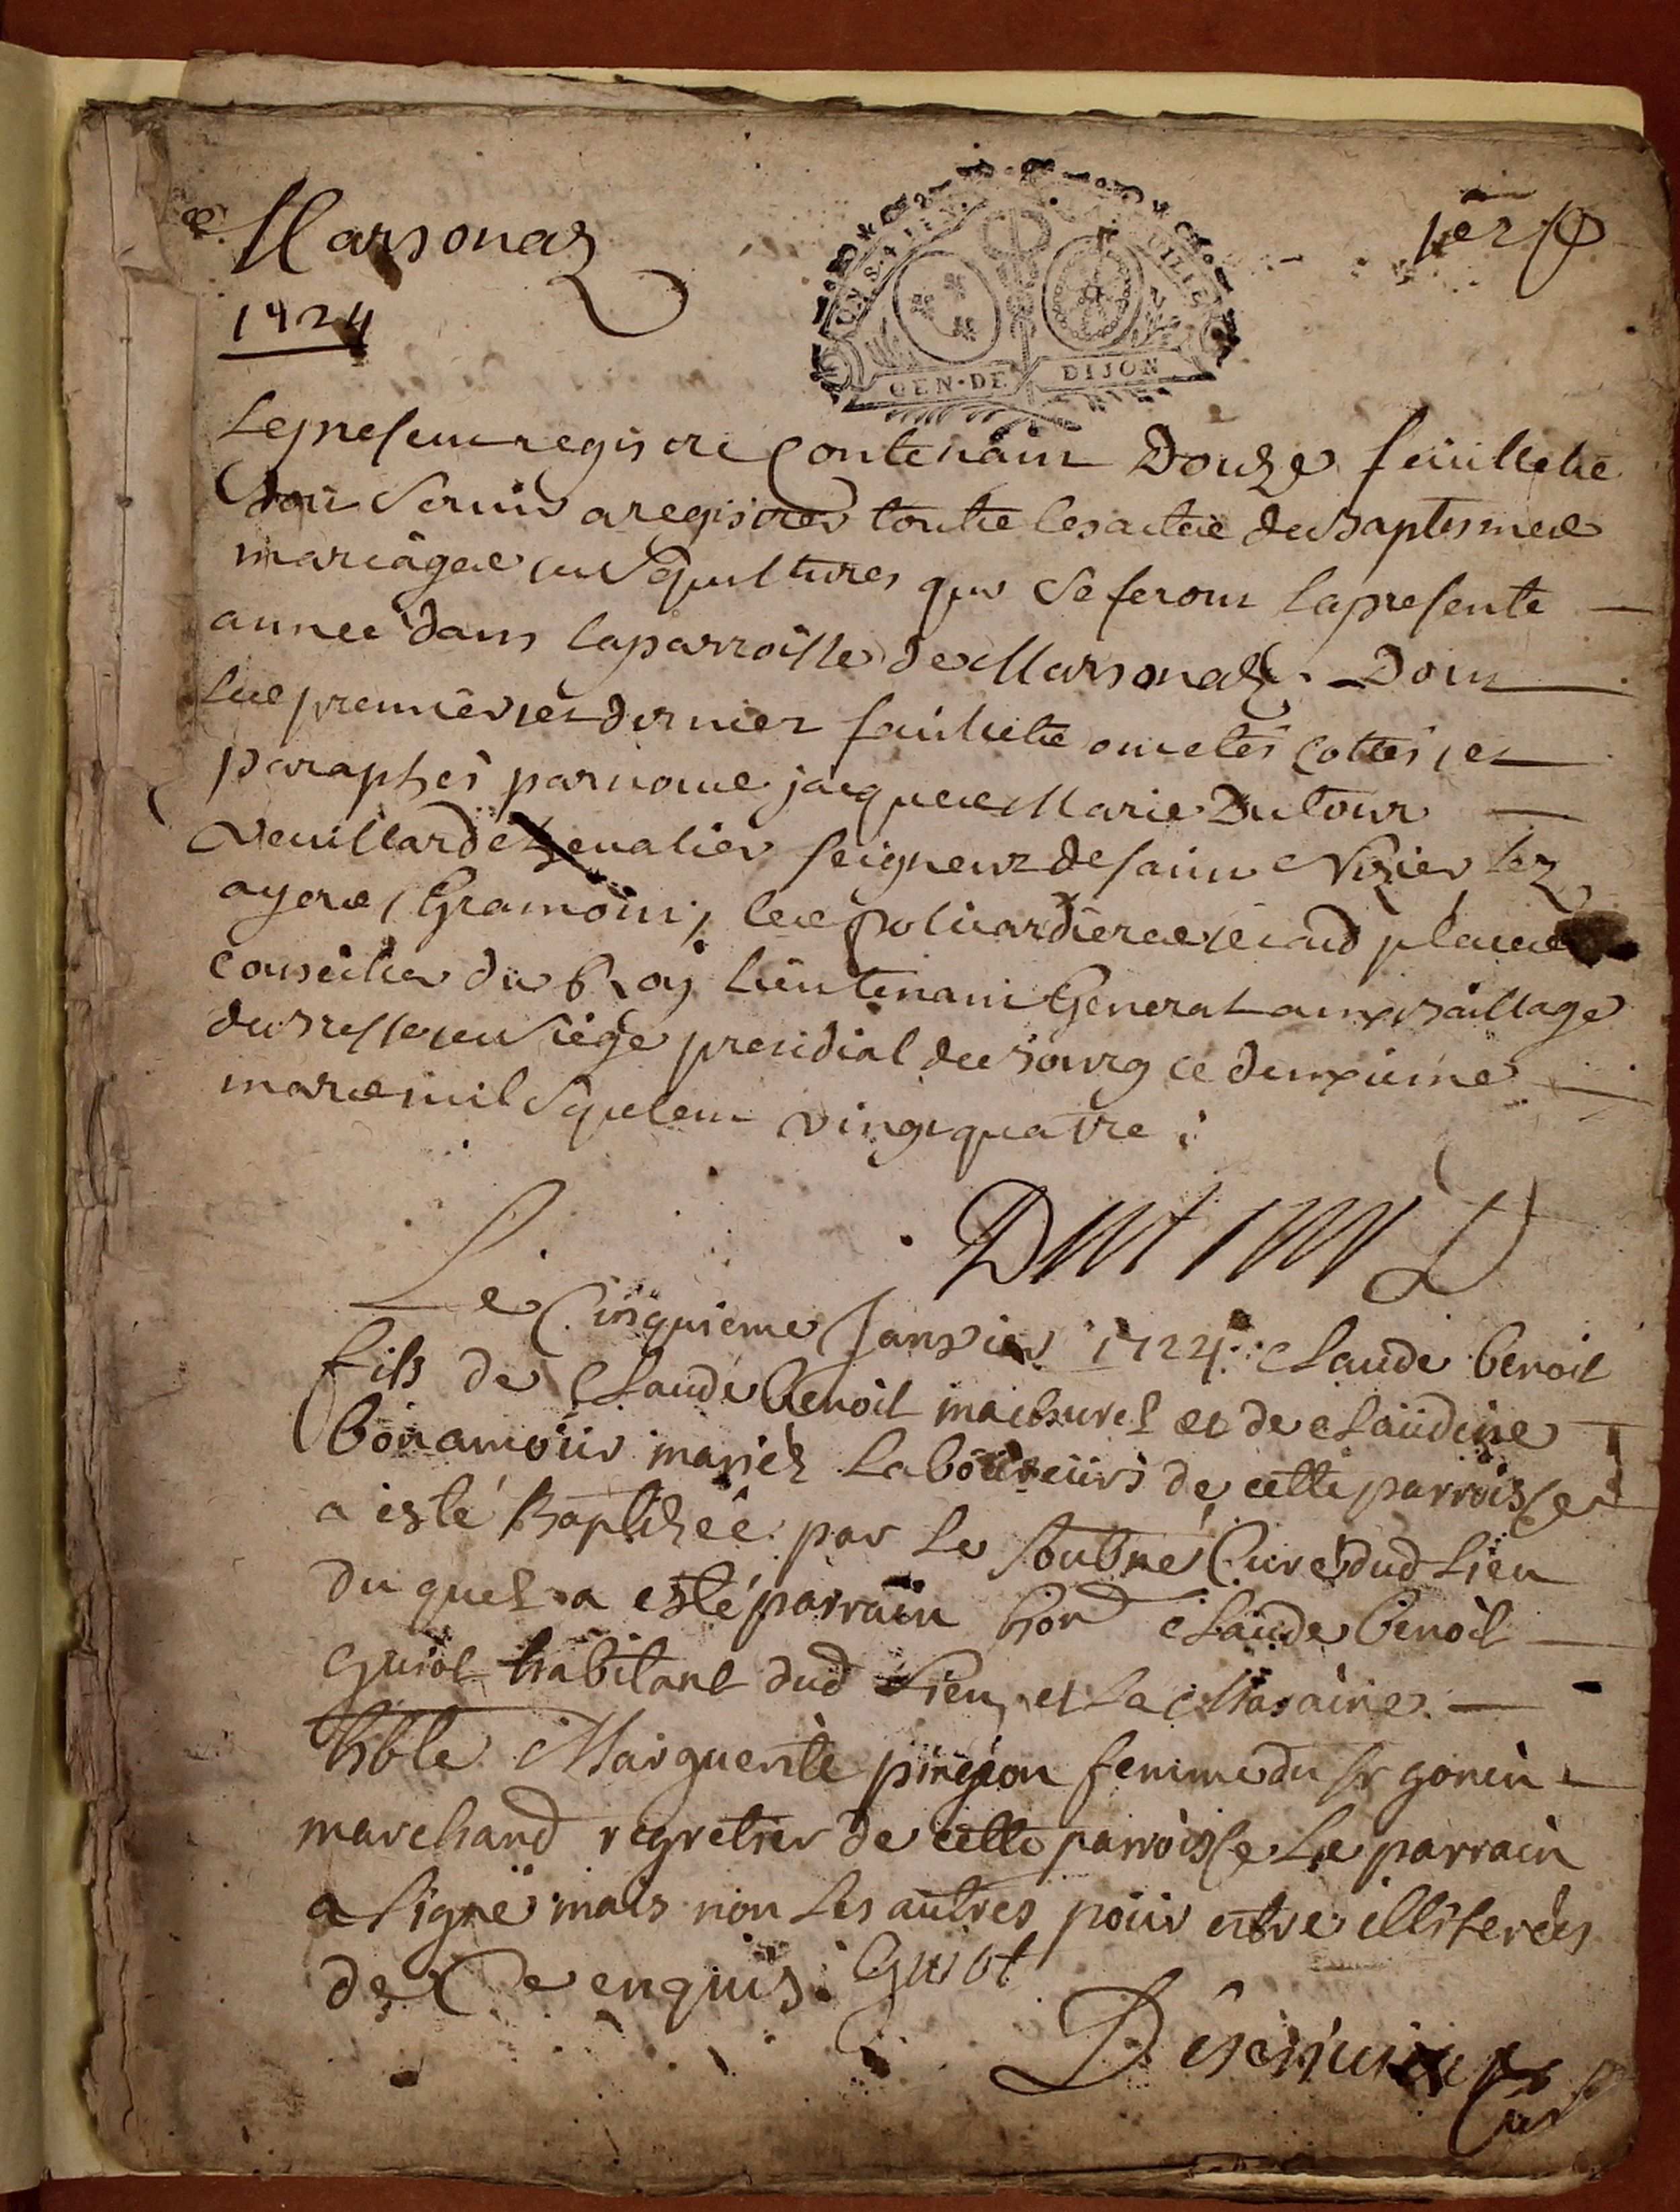 Marsonas
1er
1724
GEN·DE DIJON
Le present registre Contenant Douze feuillets
Doit servir a registrer toutte les actes de baptesmes
mariages et sepultures qui se feront la presente
annee dans la parroisse de Marsonas. Dont
les premier et dernier feuillets ont etés cottés et
paraphés par nous jacques Marie Dutour
Vuillard chevalier seigneur de saint Nizier lez
Conseiller du Roy Lieutenant General au baillage
de bresse et siege presidial de bourg ce deuxieme
mars mil sept cent vingt quatre :
Dutour
Le Cinquieme Janvier 1724 : Claude benoit
fils de Claude benoit machurel et de Claudine
bonamour mariéz Laboureurs de cette parroisse
a esté Baptizée par Le soubné Curé dud Lieu
du quel a esté parrain hon Claude benoit
Guiot habitant dud Lieu, et La Maraine
hble Marguerite pingeon femme du sr gonin
marchand regretier de cette parroisse Le parrain
a signé mais non Les autres pour estre illiterées
de Ce enquis. Guiot